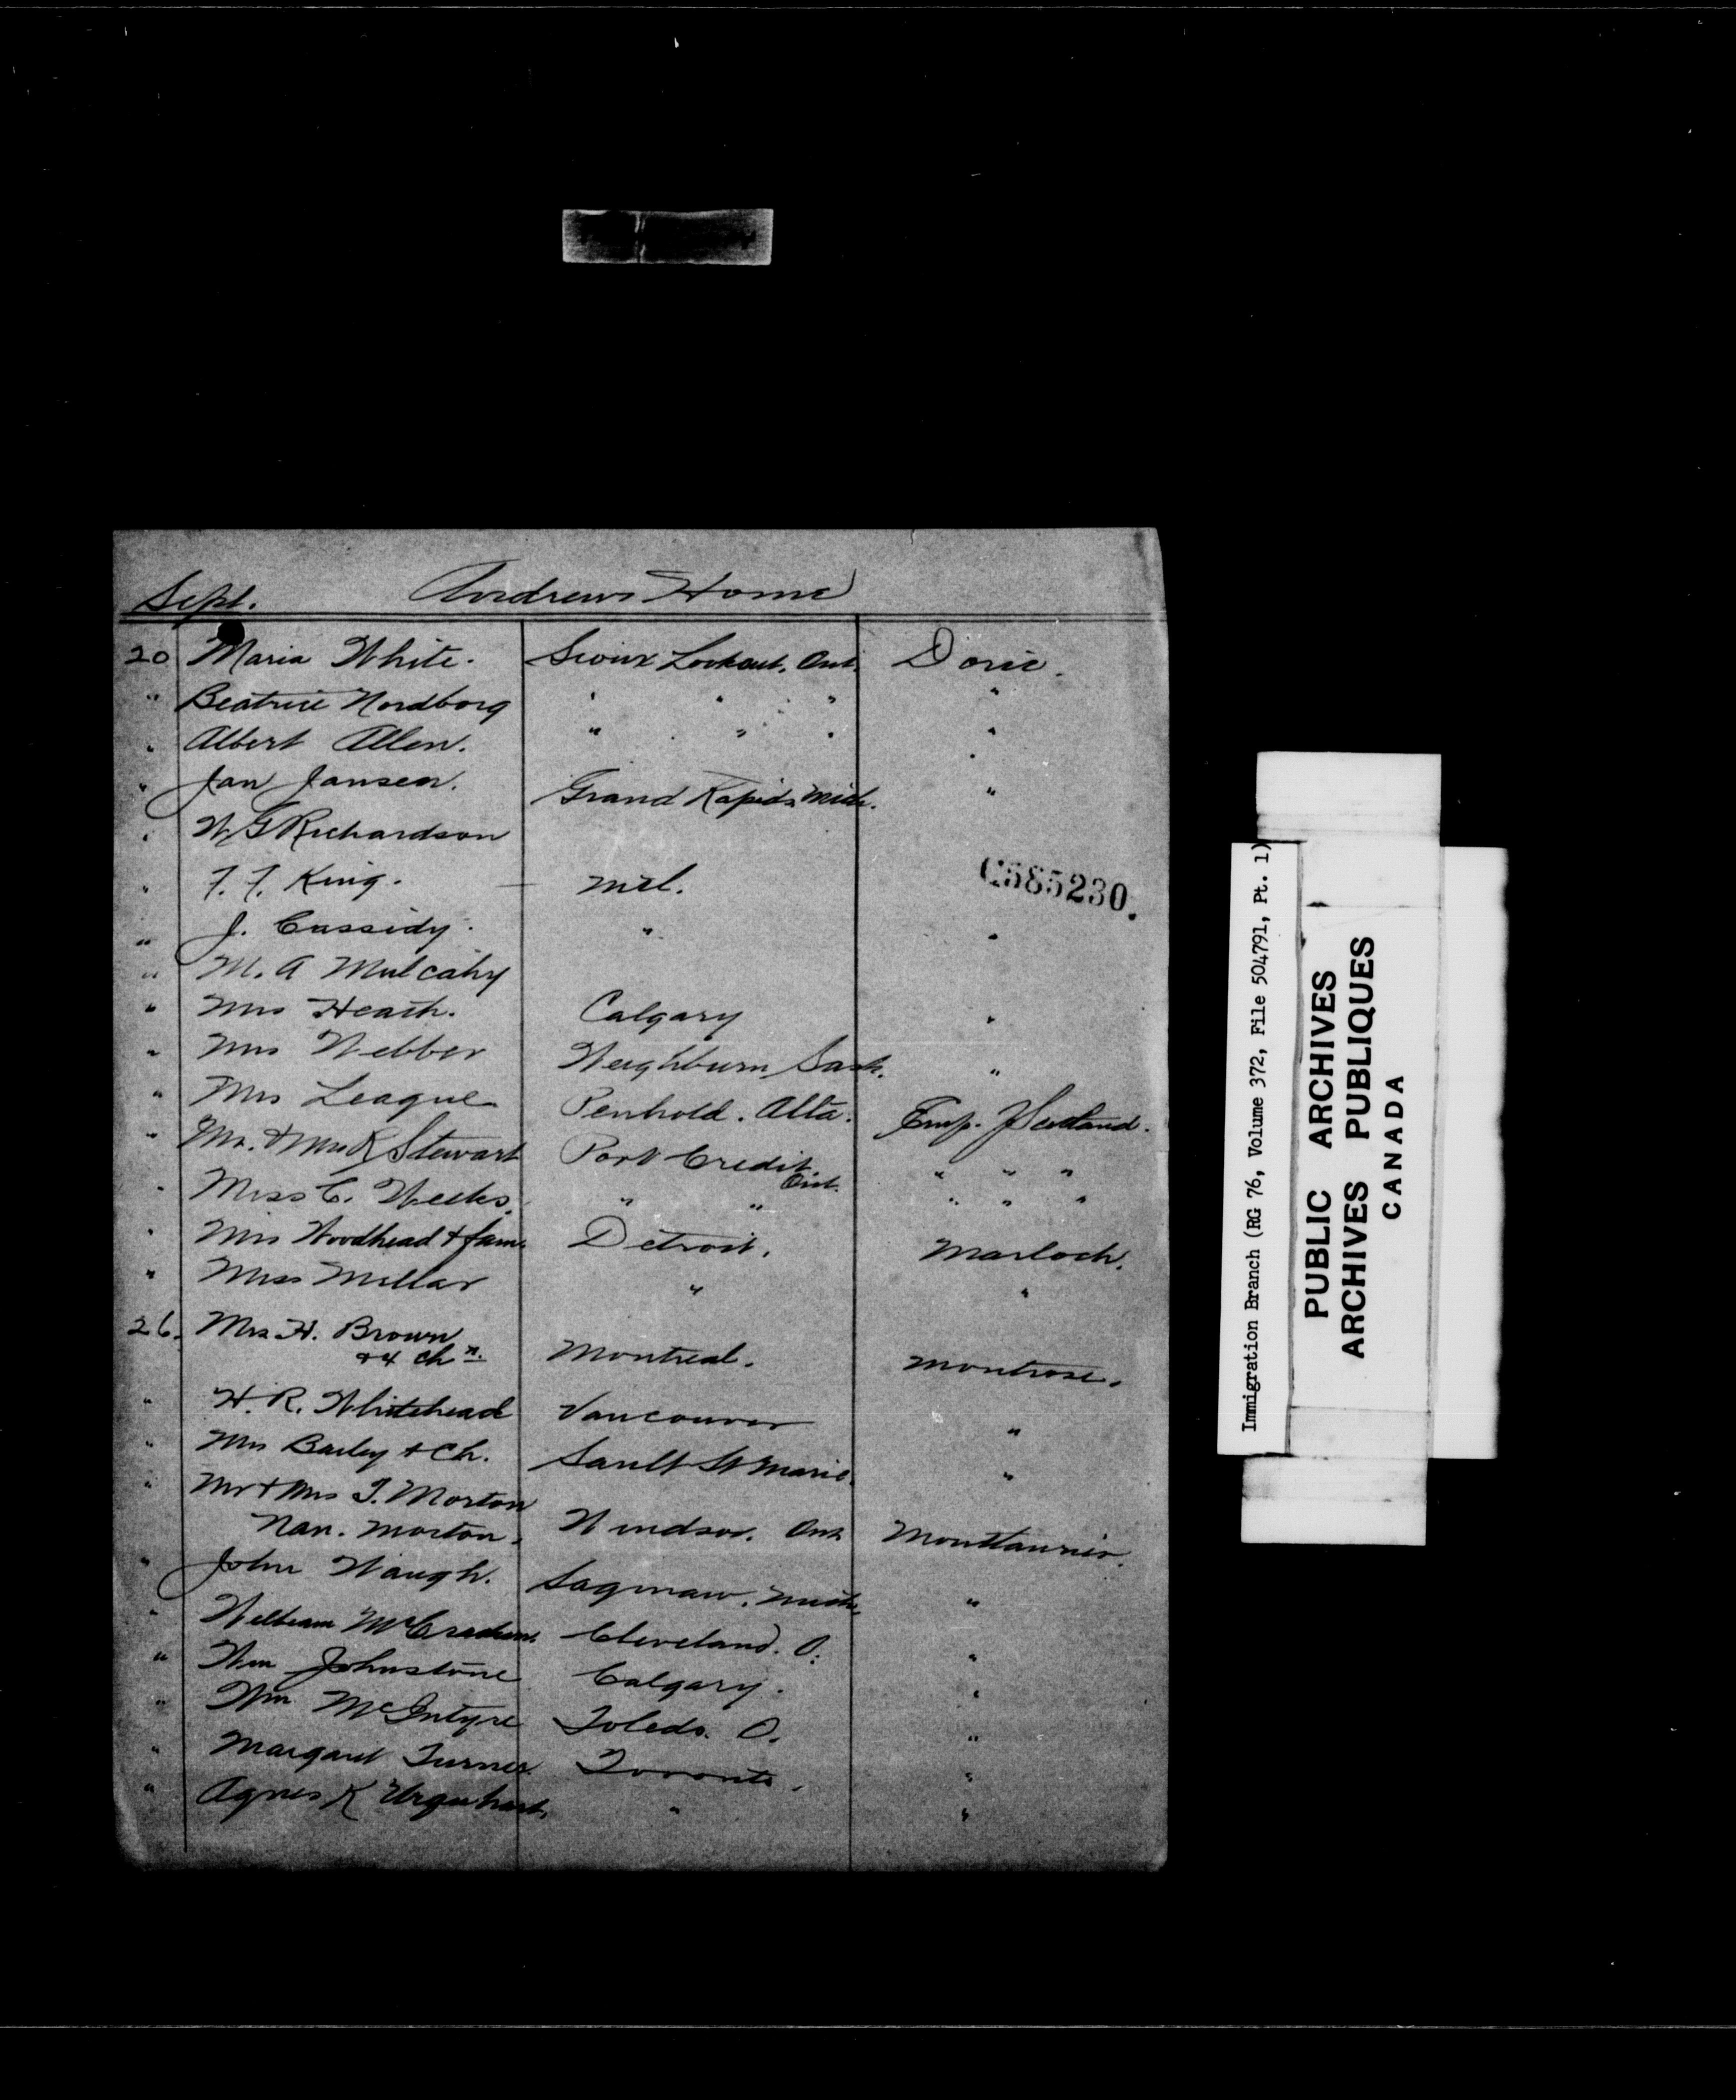 Sept. Andrews Home
20 Maria White. Sioux Lookout. Ont. Doric.
" Beatrice Nordborg " " " "
" Albert Allen. " " " "
" Jan Jansen. Grand Rapids Mich. "
" W G Richardson
" F. F. King. — Mtl.
C585230.
" J. Cassidy. " "
" M. A Mulcahy
" Mrs Heath. Calgary "
" Mrs Webber Weighburn Sask. "
" Mrs League Penhold. Alta. Emp. Scotland.
" Mr. & Mrs R Stewart Port Credit. Ont. " " "
" Miss C. Weeks. " " " " "
" Mrs Woodhead & fam. Detroit. Marloch.
" Miss Millar " "
26. Mrs H. Brown
& 4 chn. Montreal. Montrose.
" H. R. Whitehead Vancouver "
" Mrs Bailey & Ch. Sault St Marie. "
" Mr & Mrs T. Morton
Nan. Morton. Windsor. Ont Montlaurier.
" John Waugh. Saginaw. Mich. "
" William Cleveland. O. "
" Wm Johnstone Calgary. "
" Wm McIntyre Toledo. O. "
" Margaret Turner. Toronto. "
" Agnes K Urquhart. " "
Immigration Branch (RG 76, Volume 372, File 504791, Pt. 1)
PUBLIC ARCHIVES
ARCHIVES PUBLIQUES
CANADA